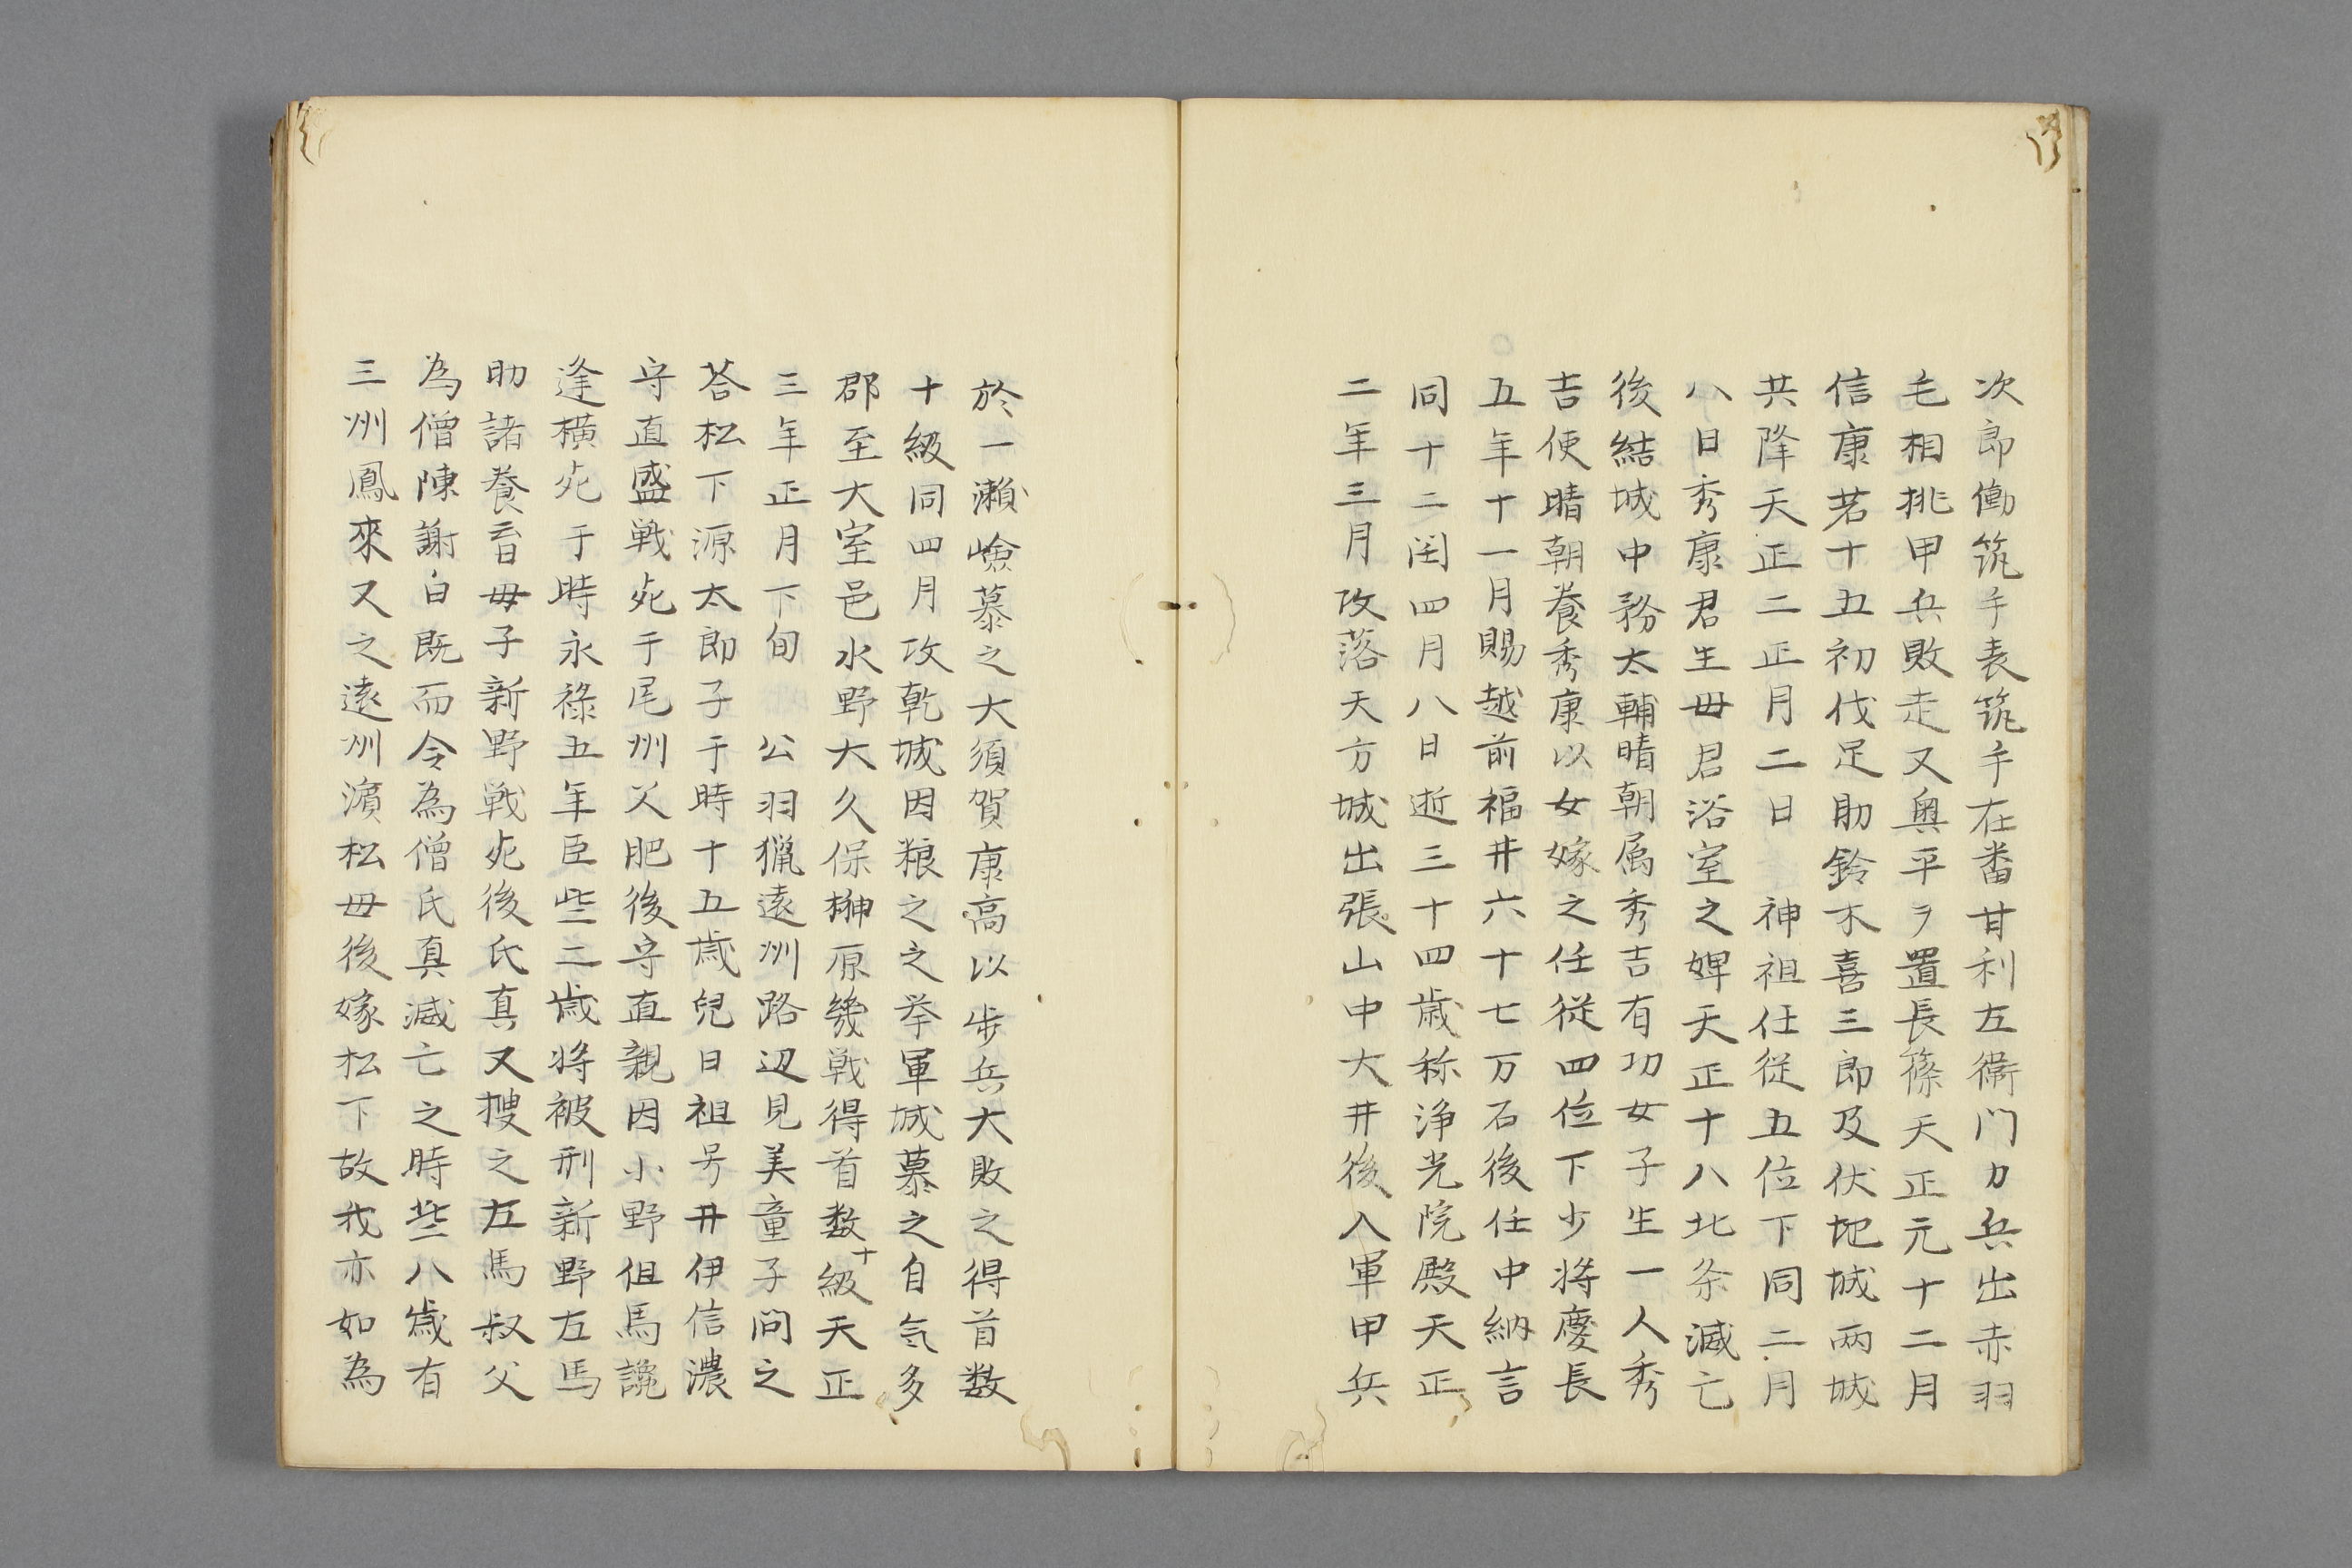 次郎働筑手表筑手在畨甘利左衛门力兵出赤羽
毛相挑甲兵敗走又奥平ヲ置長篠天正元十二月
信康君十五初伐足助鈴木喜三郎及伏地城両城
共降天正二正月二日　神祖任従五位下同二月
八日秀康君生毋君浴室之婢天正十八北条滅亡
後結城中務太輔晴朝属秀吉有功女子生一人秀
吉使晴朝養秀康以女嫁之任従四位下少将慶長
五年十一月賜越前福井六十七万石後任中納言
同十二閏四月八日逝三十四歳称浄光院殿天正
二年三月攻落天方城出張山中大井後入軍甲兵
於一瀬嶮慕之大須賀康高以歩兵大敗之得首数
十級同四月攻乾城因粮之之挙軍城慕之自氣多
郡至大室邑水野大久保榊原幾戦得首数十級天正
三年正月下旬　公羽猟遠州路辺見美童子問之
荅松下源太郎子于時十五歳兒曰祖号井伊信濃
守直盛戦死于尾州父肥後守直親因小野但馬讒
逢横死于時永禄五年臣些二歳将被刑新野左馬
助諸養畜毋子新野戦死後氏真又捜之左馬叔父
為僧陳謝白既而令為僧氏真滅亡之時些八歳有
三州鳳來又之遠州濵松毋後嫁松下故我亦如為